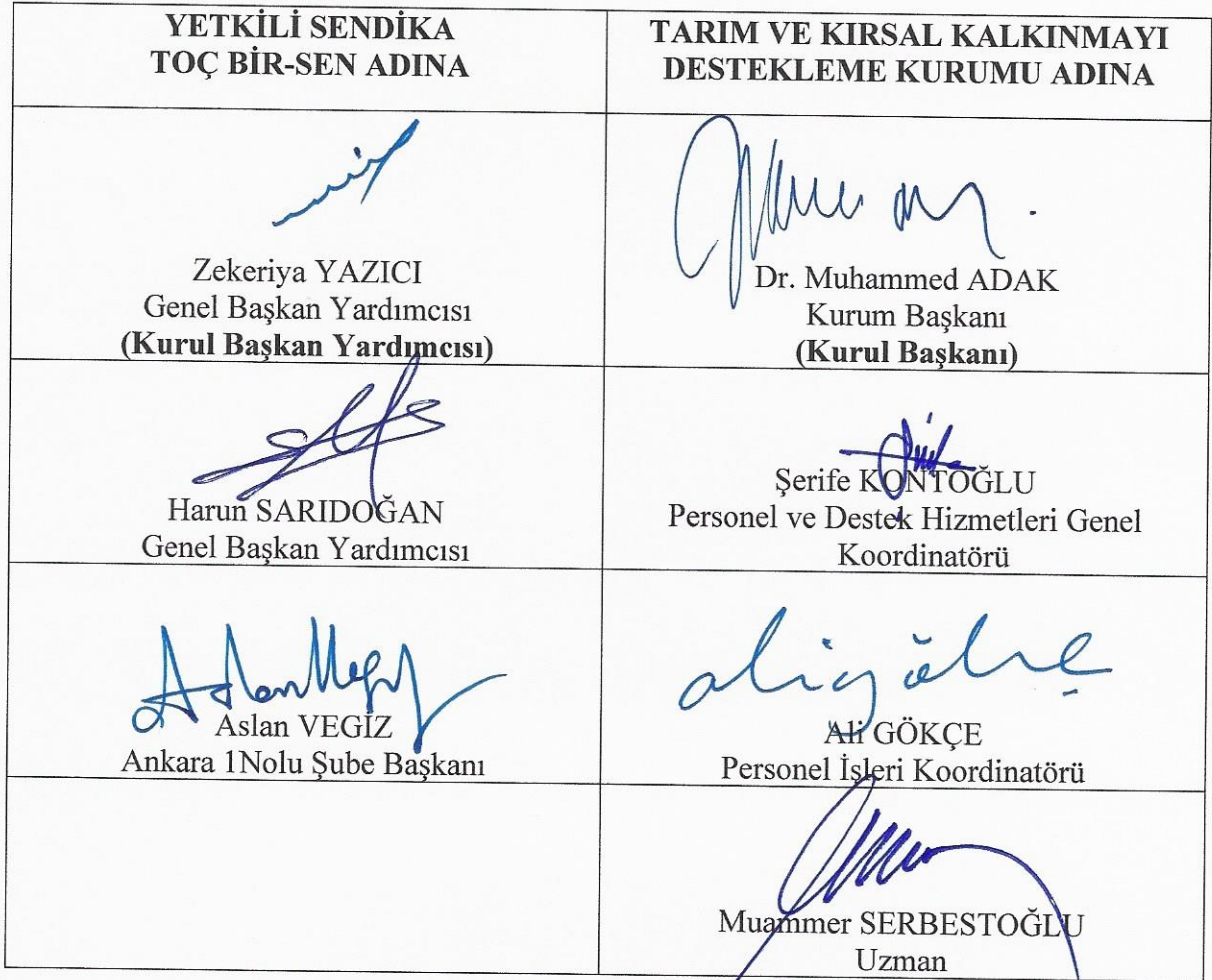 YETKİLİ SENDİKA
TOÇ BİR-SEN ADINA
TARIM VE KIRSAL KALKINMAYI
DESTEKLEME KURUMU ADINA
Zekeriya YAZICI
Genel Başkan Yardımcısı
(Kurul Başkan Yardımcısı)
Dr. Muhammed ADAK
Kurum Başkanı
(Kurul Başkanı)
Harun SARIDOĞAN
Genel Başkan Yardımcısı
Şerife KONTOĞLU
Personel ve Destek Hizmetleri Genel
Koordinatörü
Aslan VEGİZ
Ankara 1Nolu Şube Başkanı
Ali GÖKÇE
Personel İşleri Koordinatörü
Muammer SERBESTOĞLU
Uzman